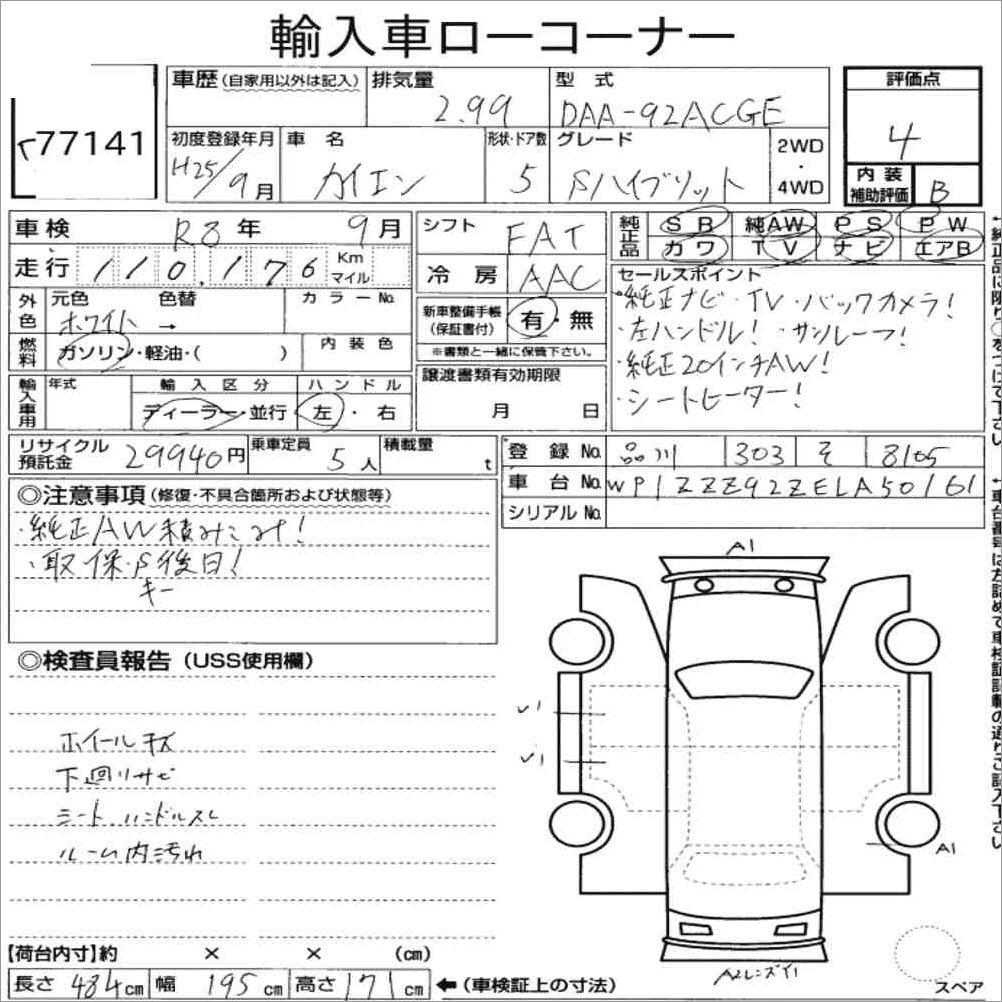 輸入車ローコーナー
77141
車歴(自家用以外は記入) 排気量 2.99 型式 DAA-92ACGE
評価点 4
初度登録年月 H25/9月 車名 カイエン 形状・ドア数 5 グレード Sハイブリット 2WD・4WD
内装補助評価 B
車検 R8年 9月 シフト FAT 純正品 SR 純AW PS PW
走行 110,176 Km マイル 冷房 AAC カワ TV ナビ エアB
外色 元色 ホワイト → 色替 カラーNo.
新車整備手帳(保証書付) 有・無
※書類と一緒に保管下さい。
セールスポイント
・純正ナビ・TV・バックカメラ!
・左ハンドル! ・サンルーフ!
・純正20インチAW!
・シートヒーター!
燃料 ガソリン・軽油・( ) 内装色
輸入車用 年式 輸入区分 ディーラー・並行 ハンドル 左・右
譲渡書類有効期限 月 日
リサイクル預託金 29940円 乗車定員 5人 積載量 t
登録No. 品川 303 そ 8105
車台No. WP1ZZZ92ZELA50161
シリアルNo.
◎注意事項(修復・不具合箇所および状態等)
・純正AW積みこみ!
・取保・S後日!
キー
◎検査員報告(USS使用欄)
ホイールキズ
下廻りサビ
シート ハンドルスレ
ルーム内汚れ
A1
A1
A2レンズY1
スペア
【荷台内寸】約 × × (cm)
長さ 484cm 幅 195cm 高さ 171cm ←(車検証上の寸法)